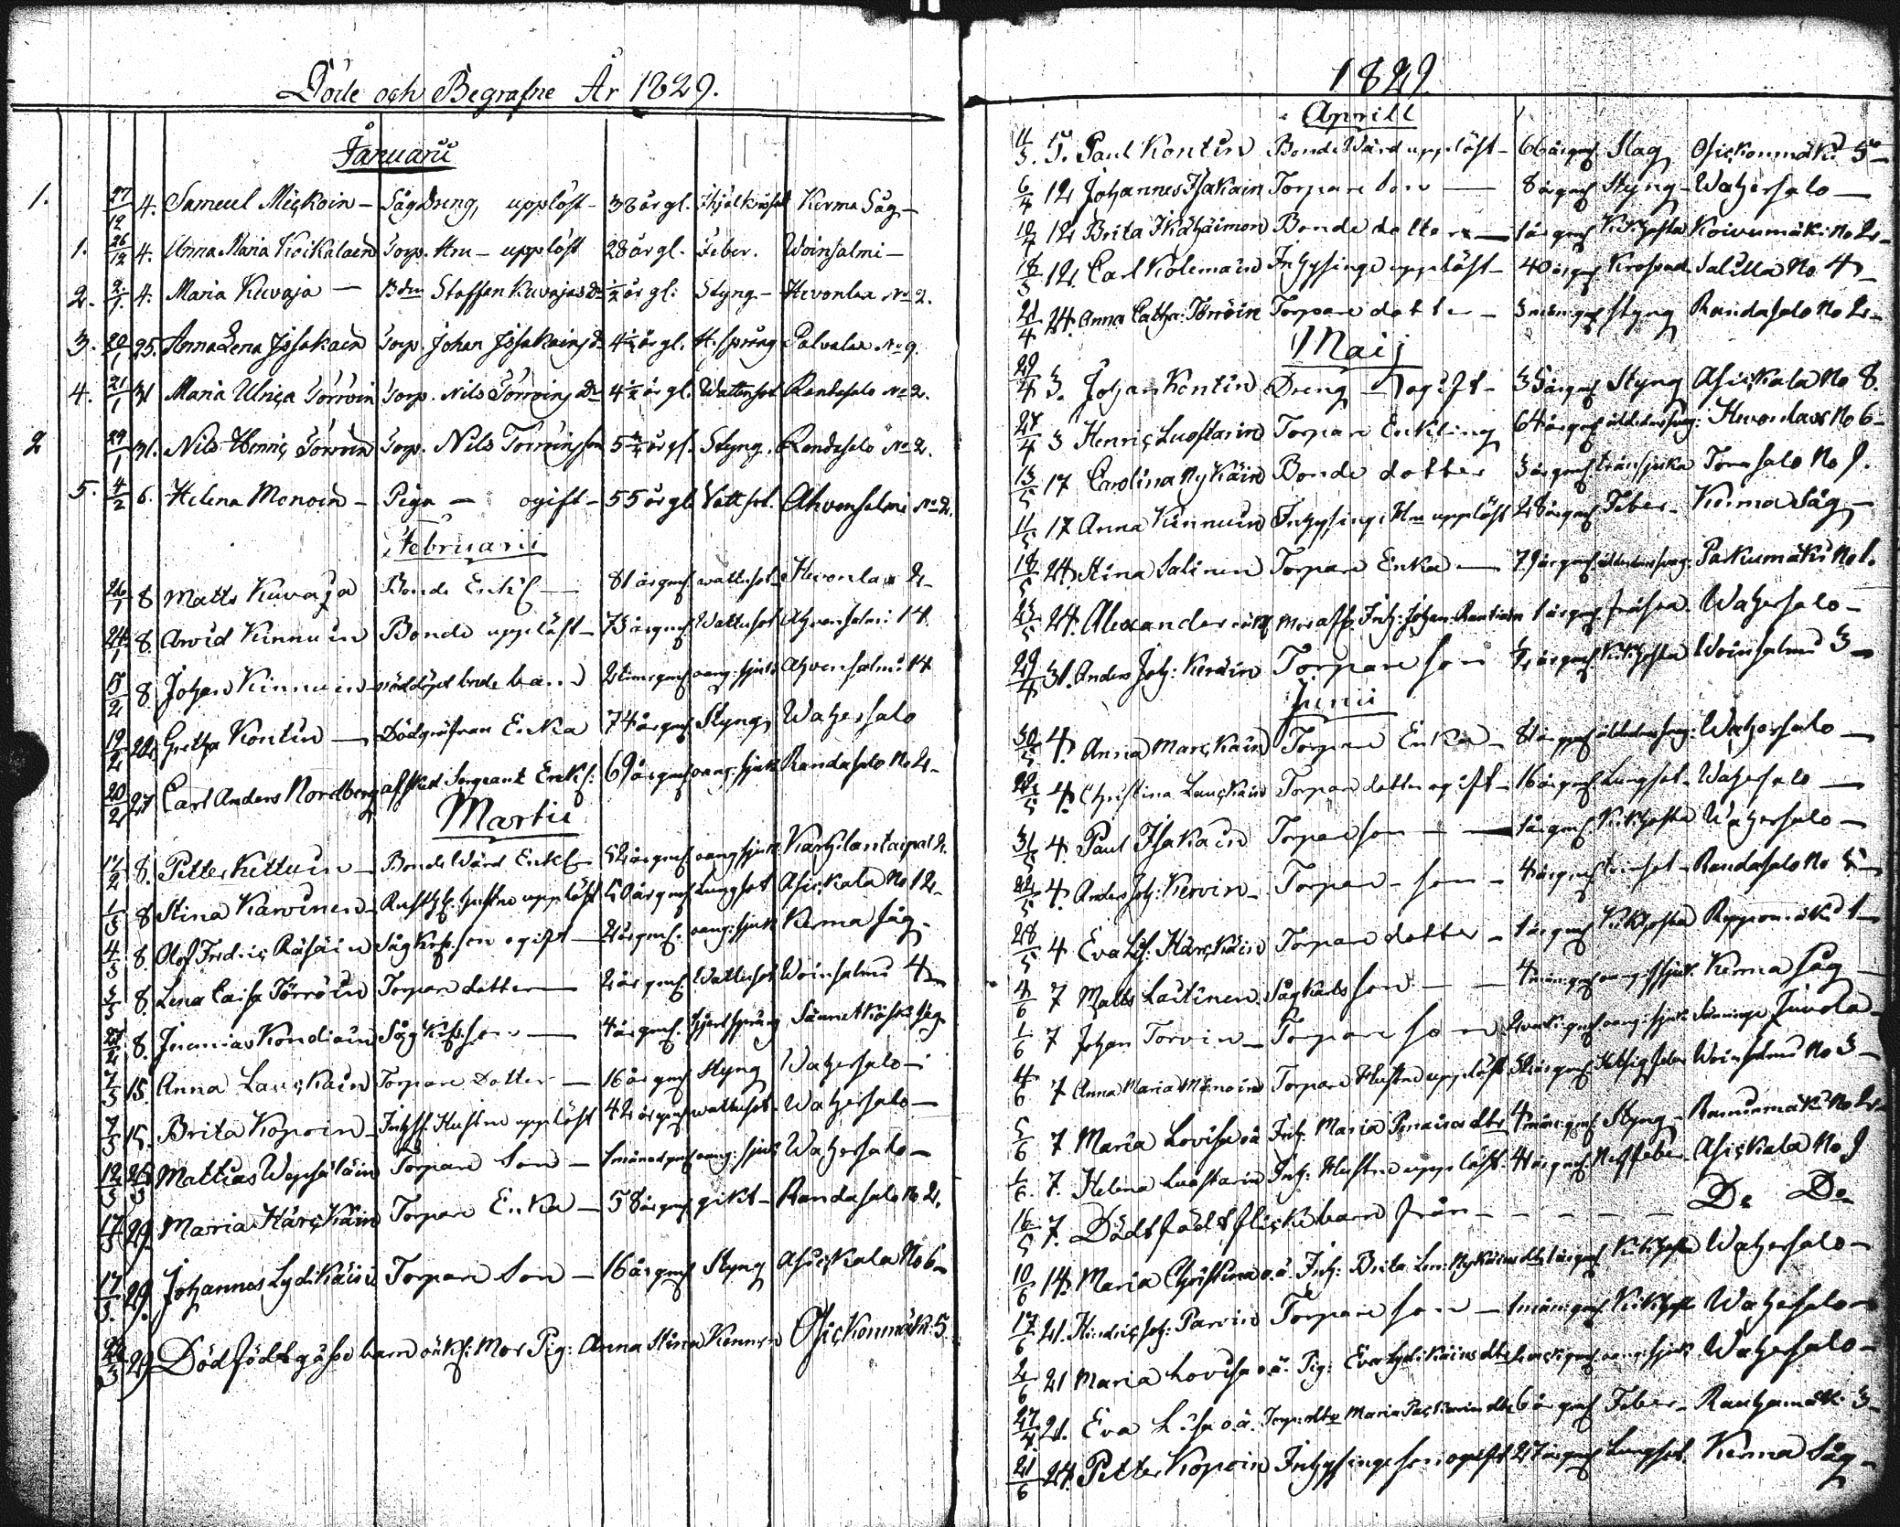 Döde och Begrafne År 1829.
Januarii
1. 27/12 4. Samuel Mickoin - Såg Dreng, upplöst - 38 år gl. Kerma Såg -
1. 26/12 4. Anna Maria Torp. Hu - upplöst 28 år gl. Feber. Woinsalmi -
2. 2/1 4. Maria Kuvaja - Bdn Staffen Kuvajas Dr 1/2 år gl: Styng - Hevonlax No 2.
3. 20/1 25. Anna Lena Issakain Torp. Johan Issakains Dr år gl. H. språng Palvalax No 9.
4. 21/1 31 Maria Ulrica Törröin Torp. Nils Törröins Dr 4 1/2 år gl. Wattusot Randasalo No 2.
2 29/1 31. Nils Henric Törröin Torp. Nils Törröins son år gl. Styng. Randasalo No 2.
5. 4/2 6. Helena Monoin - Piga - ogift - 55 år gl. Vattsot. Ahvensalmi No 2.
Februarii
26/1 8 Matts Kuvaja Bonde Enkl - 81 år gml wattusot Hevonlax 2 -
24/1 8. Arvid Kinnuin Bonde upplöst - 73 år gml Wattusot Ahvensalmi 14.
15/2 8 Johan Kinnuin nöddöpt bonde barn 2 tim gml oang: sjuk Ahvensalmi 14
19/2 22 Gretha Kontin - Dödgräfvare Enka 74 år gml Styng Watzersalo
20/2 27 Carl Anders Nordberg afsked Sergeant Enkl: 69 år gml oang: sjuk Randasalo No 2 -
Martii
17/2 8. Petter Kettuin - Bonde Wärd Enkl - 52 år gml oang sjuk
1/3 8 Stina Karvinen - hustru upplöst 50 år gml Lungsot Asickala No 12 -
4/3 8. Olof Fredric Räisäin Såg son ogift - 21 år gml. oang: sjuk Kerma såg -
5/3 8. Lena Caisa Törröin Torpare dotter - 2 år gml Wattusot Woinsalmi 4 -
27/2 8. Jeremias Kondiain Såg son - 4 år gml. Hjertspräng såg
7/3 15. Anna Lauckain Torpare Dotter - 16 år gml Styng Watzersalo -
7/3 15. Brita Kopoin - Inhys. Hustru upplöst 42 år gml wattusot - Watzersalo -
12/3 25/3 Mattias Wepsäläin Torpare Son - 1 månad gml oang: sjuk Watzersalo -
17/3 29. Maria Härckäin Torpare Enka - 58 år gml gikt - Randasalo No 2.
17/3 29. Johannes Lydikäin Torpare Son - 16 år gml Styng Asickala No 6 -
29 Dödfödt gåsse barn oäkt: Mor Pig: Anna Stina Kinnun Osickonmäki 5
1829.
Aprill
11/3 5. Paul Kontin Bonde Wärd upplöst - 66 år gml Slag Osickonmäki 5 -
6/4 12 Johannes Isakain Torpare son - 8 år gml Styng - Watzersalo -
10/4 12 Brita Ikähäimon Bonde dotter - 1 år gml Kikhosta Koivumäki No 2 -
18/3 12. Carl Kolemain Inhysinge upplöst - 40 år gml Salilla No 4 -
21/4 24. Anna Catha: Törröin Torpare dotter - 3 mån gml styng Randasalo No 2 -
Maij
29/4 3. Johan Kontin Dreng - ogift - 35 år gml Styng Asickala No 8.
27/4 3 Henric Luostarin Torpare Enkling 64 år gml ålderdomsvag: Hevonlax No 6 -
13/5 17 Carolina Nykäin Bonde dotter 3 år gml Tonsalo No 9.
11/5 17 Anna Kinnuin Inhysing: Hu upplöst 28 år gml Feber - Kerma Såg -
18/5 24. Stina Salinen Torpare Enka - 79 år gml ålderdomsvag: Paskumäki No 1.
23/5 24. Alexander oäkt Mor Inh: Johan 1 år gml fråssa Watzersalo -
29/4 31. Anders Joh: Keröin Torpare son år gml Kikhosta Woinsalmi 3 -
Junii
30/5 4. Anna Marckain Torpare Enka - 81 år gml ålderdomsvag: Watzersalo -
22/5 4. Christina Lauckain Torpare dotter ogift - 16 år gml Lungsot - Watzersalo -
31/5 4. Paul Isakain Torpare son - 1 år gml Kikhosta Watzersalo -
22/5 4. Anders Joh: Kervin - Torpare - son - 4 år gml Randasalo No 5 -
28/5 4 Eva Lis: Härckäin Torpare dotter - 1 år gml Kikhosta Repponmäki 1 -
4/6 7 Matts Laitinen. Sågkarls son - - 4 mån gml oang: sjuk. Kerma såg -
1/6 7 Johan Torvin - Torpare son oang: sjuk Juvola -
4/6 7 Anna Maria Mönoin Torpare Hustru upplöst år gml Woinsalmi No 3 -
5/6 7 Maria Lovisa oä Inh. Maria dtr 4 mån gml Styng - No 2 -
1/6 7. Helena Luostarin Inh: Hustru upplöst. 41 år gml feber - Asickala No 9
16/5 7. Dödt född flicke barn från - - - - - Do Do
10/6 14. Maria Christina o.ä. Inh: Brita Len: Nykäins dtr 1 år gml Kikhosta Watzersalo -
17/6 21. Hindric Joh: Parvin Torpare son - 1 mån gml Kikhosta Watzersalo -
2/6 21 Maria Lovisa o.ä. Pig: Eva Lydikäins dtr oang: sjuk Watzersalo -
27/4 21. Eva Lisa o.ä. Torp: dtr Maria dtr 6 år gml Feber - Rauhamäki 3 -
21/6 24. Petter Kopoin Inhysinge son ogift 27 år gml Lungsot. Kerma Såg -